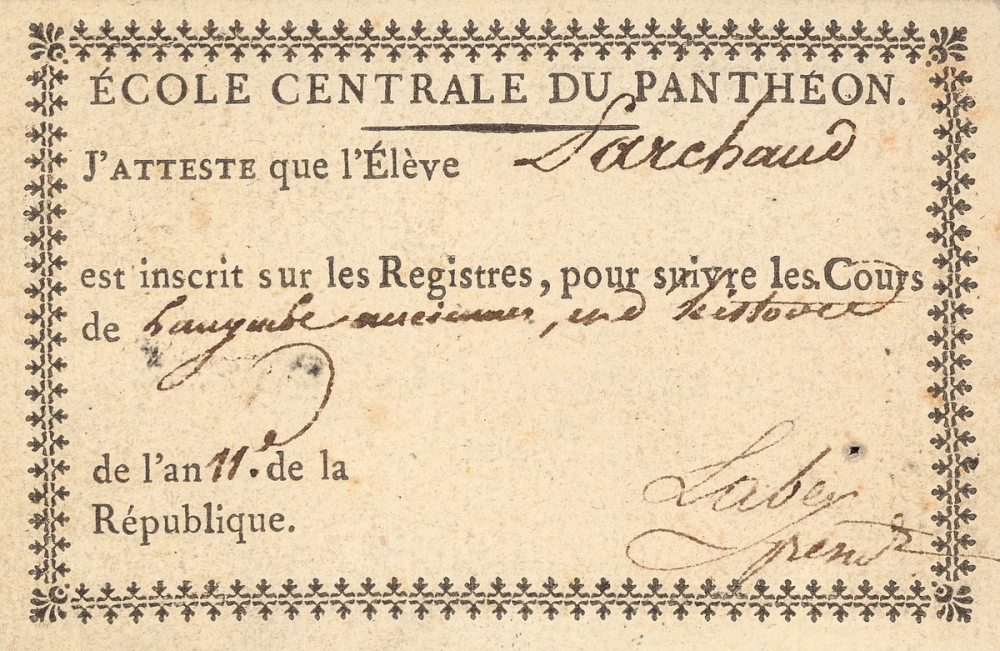 ÉCOLE CENTRALE DU PANTHÉON.
J'ATTESTE que l'Élève Larchaud
est inscrit sur les Registres, pour suivre les Cours
de anciennes,
de l'an 11.e de la
République.
Labey